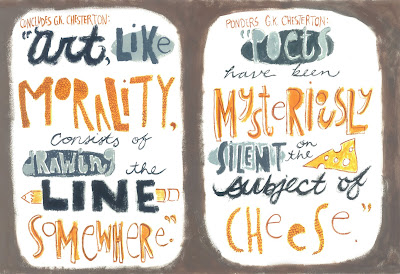 CONCLUDES G.K. CHESTERTON:
"Art, LIKE
MORALITY,
consists of
DRAWING the
LINE
SOMEWHERE."
PONDERS G.K. CHESTERTON:
"POETS
have been
MYSTERIOUSLY
SILENT on the
subject of
CHEESE."